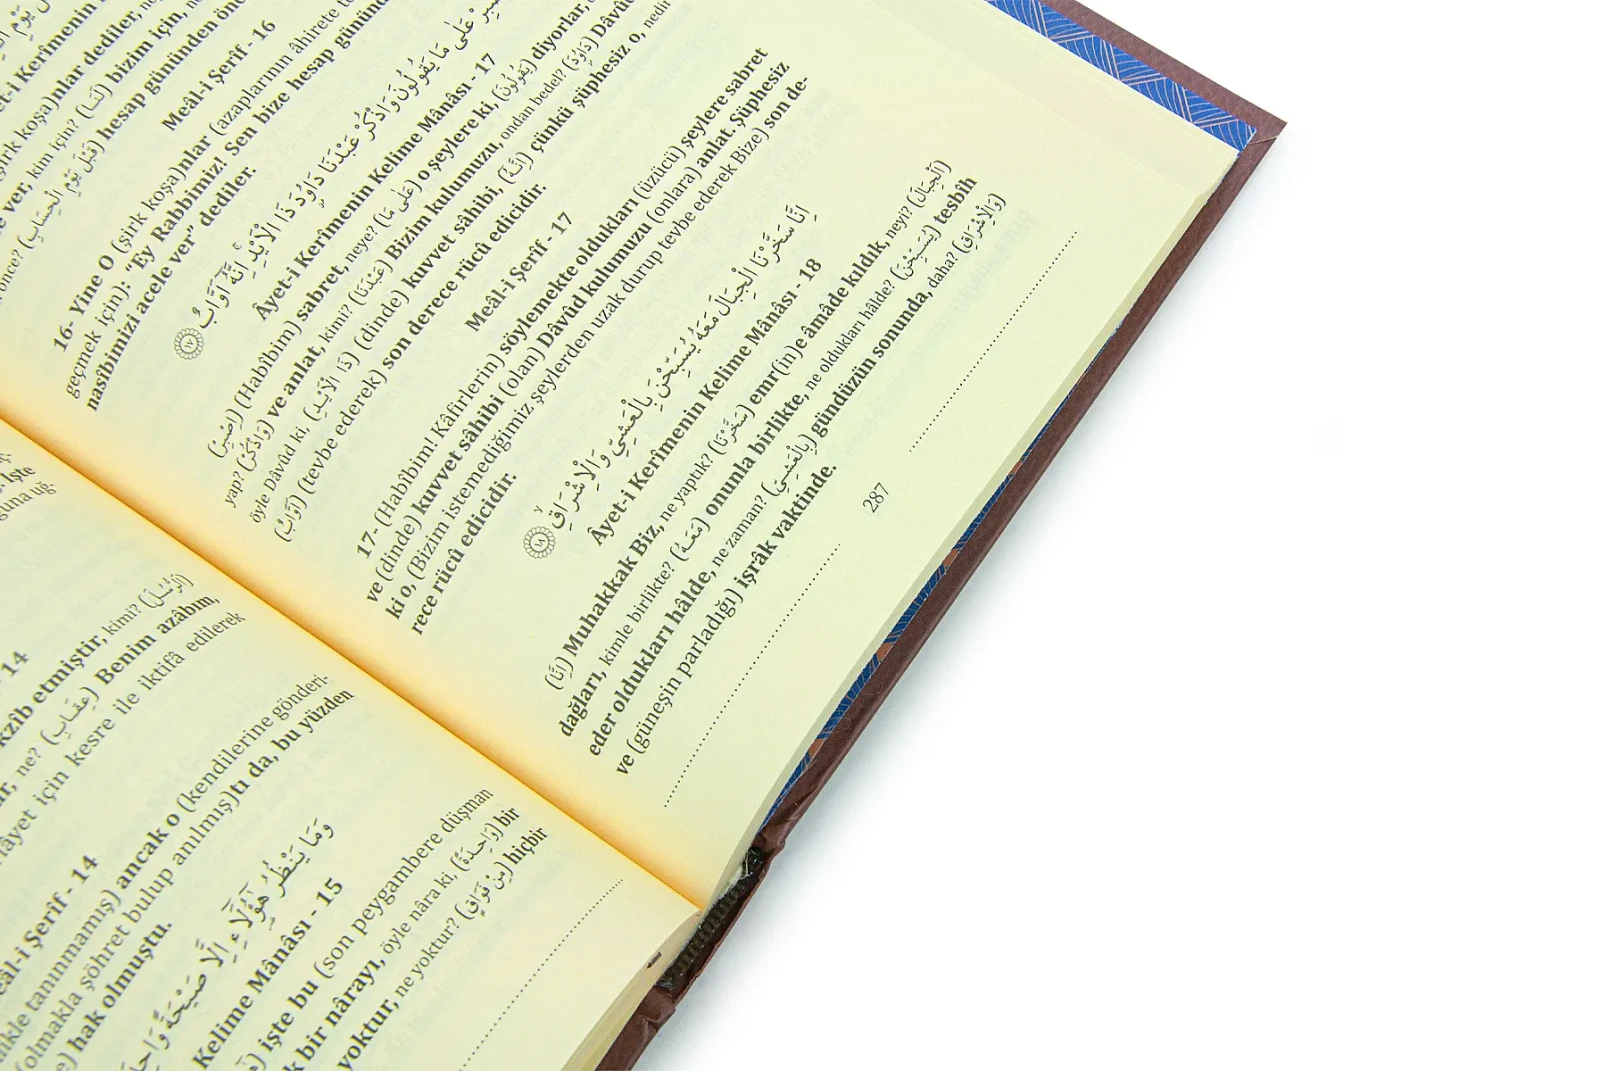 kzîb etmiştir, kimi? (الرُّسُلَ)
ne? (عِقَابِ) Benim azâbım,
âyet için kesre ile iktifâ edilerek
- 14
Meâl-i Şerîf - 14
tanınmamış) ancak o (kendilerine gönderi-
(olmakla şöhret bulup anılmış)tı da, bu yüzden
hak olmuştu.
وَمَا يَنْظُرُ هٰٓؤُ۬لَٓاءِ اِلَّا صَيْحَةً
Kelime Mânâsı - 15
işte bu (son peygambere düşman
bir nârayı, öyle nâra ki, (وَاحِدَةً) bir
yoktur, ne yoktur? (مِنْ فَوَاقٍ) hiçbir
dediler,
bizim için,
kim için? (لَنَا)
ver,
(قَبْلَ يَوْمِ الْحِسَابِ) hesap gününden önce
Meâl-i Şerîf - 16
16- Yine O (şirk koşa)nlar (azaplarının âhirete
geçmek için): “Ey Rabbimiz! Sen bize hesap gününden
nasîbimizi acele ver” dediler.
عَلٰى مَا يَقُولُونَ وَاذْكُرْ عَبْدَنَا دَاوُ۫دَ ذَا الْاَيْدِۚ اِنَّهُٓ اَوَّابٌ ﴿١٧﴾
Âyet-i Kerîmenin Kelime Mânâsı - 17
(اِصْبِرْ) (Habîbim) sabret, neye? (عَلٰى مَا) o şeylere ki, (يَقُولُونَ) diyorlar,
yap? (وَاذْكُرْ) ve anlat, kimi? (عَبْدَنَا) Bizim kulumuzu, ondan bedel? (دَاوُ۫دَ)
öyle Dâvûd ki, (ذَا الْاَيْدِ) (dinde) kuvvet sâhibi, (اِنَّهُٓ) çünkü şüphesiz o, nedir
(اَوَّابٌ) (tevbe ederek) son derece rücû edicidir.
Meâl-i Şerîf - 17
17- (Habîbim! Kâfirlerin) söylemekte oldukları (üzücü) şeylere sabret
ve (dinde) kuvvet sâhibi (olan) Dâvûd kulumuzu (onlara) anlat. Şüphesiz
ki o, (Bizim istemediğimiz şeylerden uzak durup tevbe ederek Bize) son de-
rece rücû edicidir.
اِنَّا سَخَّرْنَا الْجِبَالَ مَعَهُ يُسَبِّحْنَ بِالْعَشِيِّ وَالْاِشْرَاقِۙ ﴿١٨﴾
Âyet-i Kerîmenin Kelime Mânâsı - 18
(اِنَّا) Muhakkak Biz, ne yaptık? (سَخَّرْنَا) emr(in)e âmâde kıldık, neyi? (الْجِبَالَ)
dağları, kimle birlikte? (مَعَهُ) onunla birlikte, ne oldukları hâlde? (يُسَبِّحْنَ) tesbîh
eder oldukları hâlde, ne zaman? (بِالْعَشِيِّ) gündüzün sonunda, daha? (وَالْاِشْرَاقِ)
ve (güneşin parladığı) işrâk vaktinde.
287